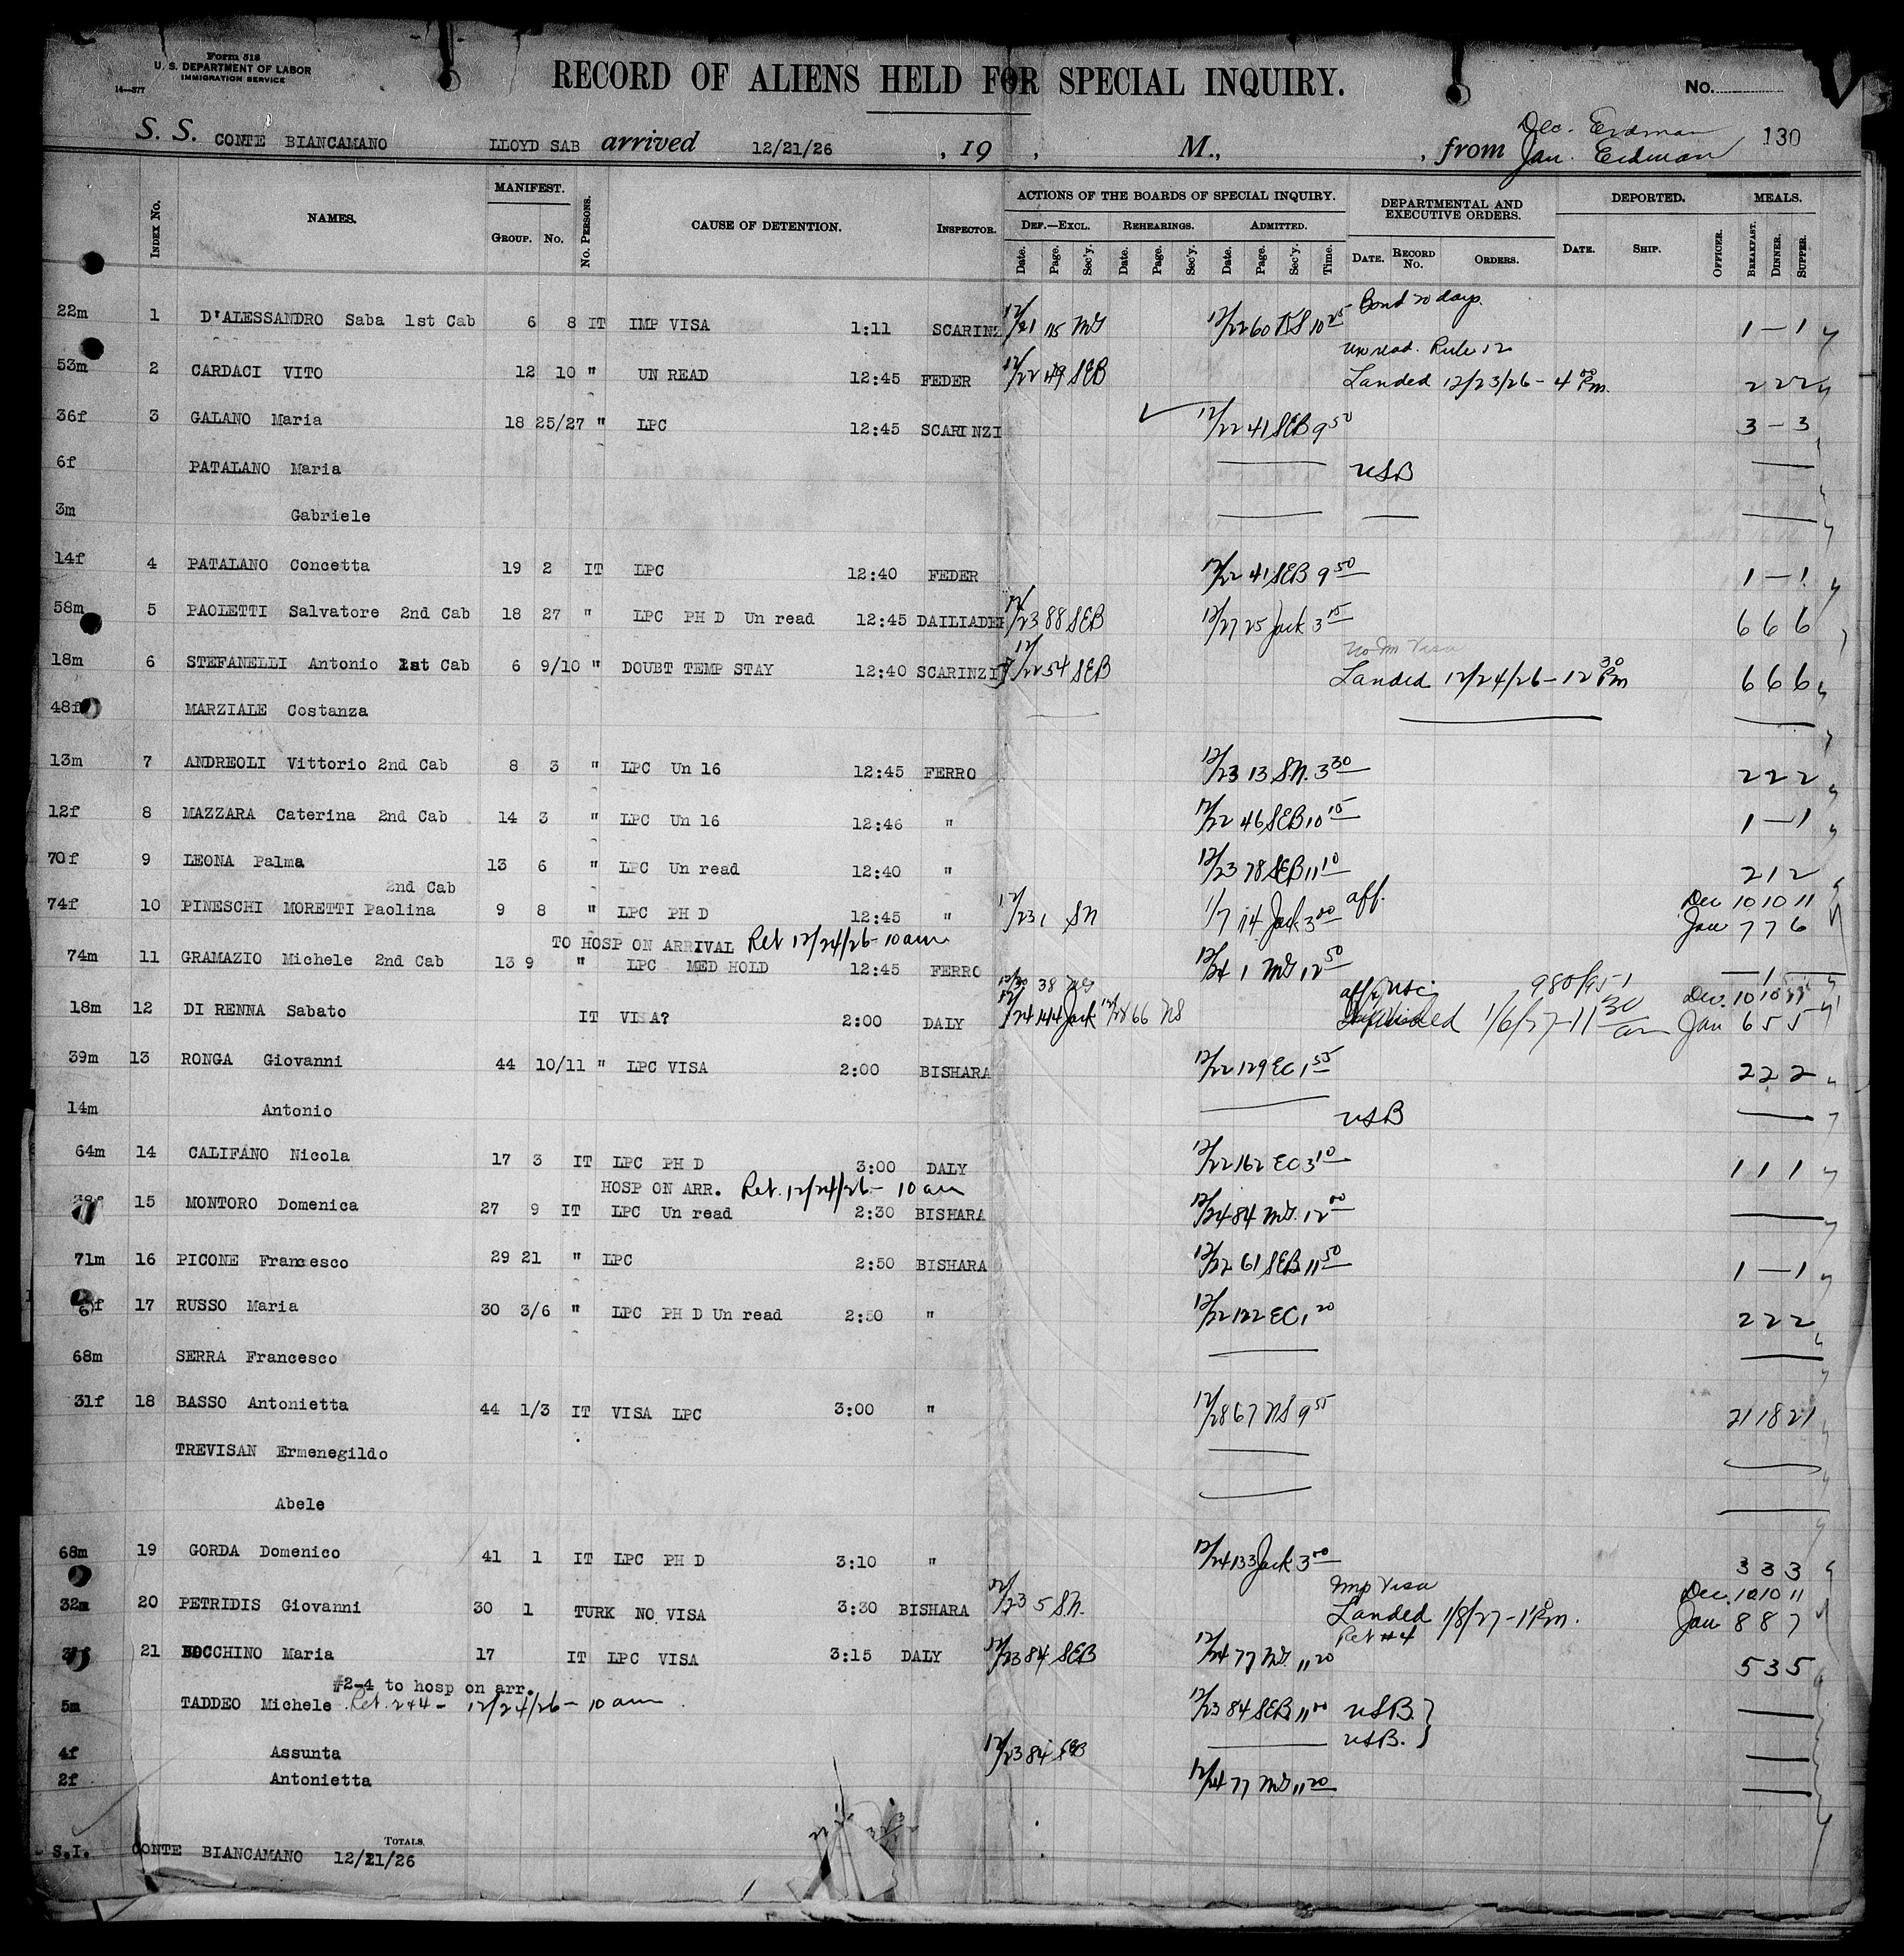 Form 518
U. S. DEPARTMENT OF LABOR
IMMIGRATION SERVICE
14—377
RECORD OF ALIENS HELD FOR SPECIAL INQUIRY.
No.
S. S. CONTE BIANCAMANO LLOYD SAB arrived 12/21/26 , 19 , M., , from Dec. Erdman
Jan. Erdman 130
INDEX No. NAMES. MANIFEST. GROUP. No. No. PERSONS. CAUSE OF DETENTION. INSPECTOR. ACTIONS OF THE BOARDS OF SPECIAL INQUIRY. DEF.—EXCL. REHEARINGS. ADMITTED. DEPARTMENTAL AND EXECUTIVE ORDERS. DEPORTED. MEALS.
Date. Page. Sec'y. Date. Page. Sec'y. Date. Page. Sec'y. Time. DATE. RECORD No. ORDERS. DATE. SHIP. OFFICER. BREAKFAST. DINNER. SUPPER.
Bond 70 days.
22m 1 D'ALESSANDRO Saba 1st Cab 6 8 IT IMP VISA 1:11 SCARINZ 12/21 115 MG 12/22 60 10 25 1 — 1
un read. Rule 12
53m 2 CARDACI VITO 12 10 " UN READ 12:45 FEDER 12/22 49 SEB Landed 12/23/26 - 4 00 Pm. 2 2 2
36f 3 GALANO Maria 18 25/27 " LPC 12:45 SCARINZI 12/22 41 SEB 9 50 3 — 3
6f PATALANO Maria USB
3m Gabriele
14f 4 PATALANO Concetta 19 2 IT LPC 12:40 FEDER 12/22 41 SEB 9 50 1 — 1
58m 5 PAOLETTI Salvatore 2nd Cab 18 27 " LPC PH D Un read 12:45 DAILIADE 12/23 88 SEB 12/27 25 Jack 3 15 6 6 6
no Im Visa
18m 6 STEFANELLI Antonio 1st Cab 6 9/10 " DOUBT TEMP STAY 12:40 SCARINZI 12/22 54 SEB Landed 12/24/26 - 12 30 Pm 6 6 6
48f MARZIALE Costanza
13m 7 ANDREOLI Vittorio 2nd Cab 8 3 " LPC Un 16 12:45 FERRO 12/23 13 S.N. 3 30 2 2 2
12f 8 MAZZARA Caterina 2nd Cab 14 3 " LPC Un 16 12:46 " 12/22 46 SEB 10 15 1 — 1
70f 9 LEONA Palma 13 6 " LPC Un read 12:40 " 12/23 78 SEB 11 10 2 1 2
2nd Cab
74f 10 PINESCHI MORETTI Paolina 9 8 " LPC PH D 12:45 " 12/23 1 SN 1/7 114 Jack 3 00 aff. Dec 10 10 11
Jan 7 7 6
TO HOSP ON ARRIVAL Ret 12/24/26 - 10 am
74m 11 GRAMAZIO Michele 2nd Cab 13 9 " LPC MED HOLD 12:45 FERRO 12/24 1 MG 12 50 — 1 —
12/30 38 980/951
18m 12 DI RENNA Sabato IT VISA? 2:00 DALY 12/24 144 Jack 12/28 66 NS 1/6/27 - 11 30 am Dec. 10 10
Jan 6 5 5
39m 13 RONGA Giovanni 44 10/11 " LPC VISA 2:00 BISHARA 12/22 129 EC 1 55 2 2 2
14m Antonio USB
64m 14 CALIFANO Nicola 17 3 IT LPC PH D 3:00 DALY 12/22 162 EC 3 10 1 1 1
HOSP ON ARR. Ret. 12/24/26 - 10 am
15 MONTORO Domenica 27 9 IT LPC Un read 2:30 BISHARA 12/24 84 MG. 12 00
71m 16 PICONE Francesco 29 21 " LPC 2:50 BISHARA 12/22 61 SEB 11 50 1 — 1
17 RUSSO Maria 30 3/6 " LPC PH D Un read 2:50 " 12/22 122 EC 1 20 2 2 2
68m SERRA Francesco
31f 18 BASSO Antonietta 44 1/3 IT VISA LPC 3:00 " 12/28 67 NS 9 55 21 18 21
TREVISAN Ermenegildo
Abele
68m 19 GORDA Domenico 41 1 IT LPC PH D 3:10 " 12/24 133 Jack 3 00 3 3 3
Imp Visa
32m 20 PETRIDIS Giovanni 30 1 TURK NO VISA 3:30 BISHARA 12/23 5 S.N. Landed 1/8/27 - 1 Pm. Dec. 10 10 11
Jan 8 8 7
Ret #4
21 BOCCHINO Maria 17 IT LPC VISA 3:15 DALY 12/23 84 SEB 12/24 77 MG. 11 20 5 3 5
#2-4 to hosp on arr.
5m TADDEO Michele Ret. 2+4 - 12/24/26 - 10 am 12/23 84 SEB 11 00 USB.
4f Assunta 12/23 84 SEB USB.
2f Antonietta 12/24 77 MG 11 20
TOTALS.
S.I. CONTE BIANCAMANO 12/21/26